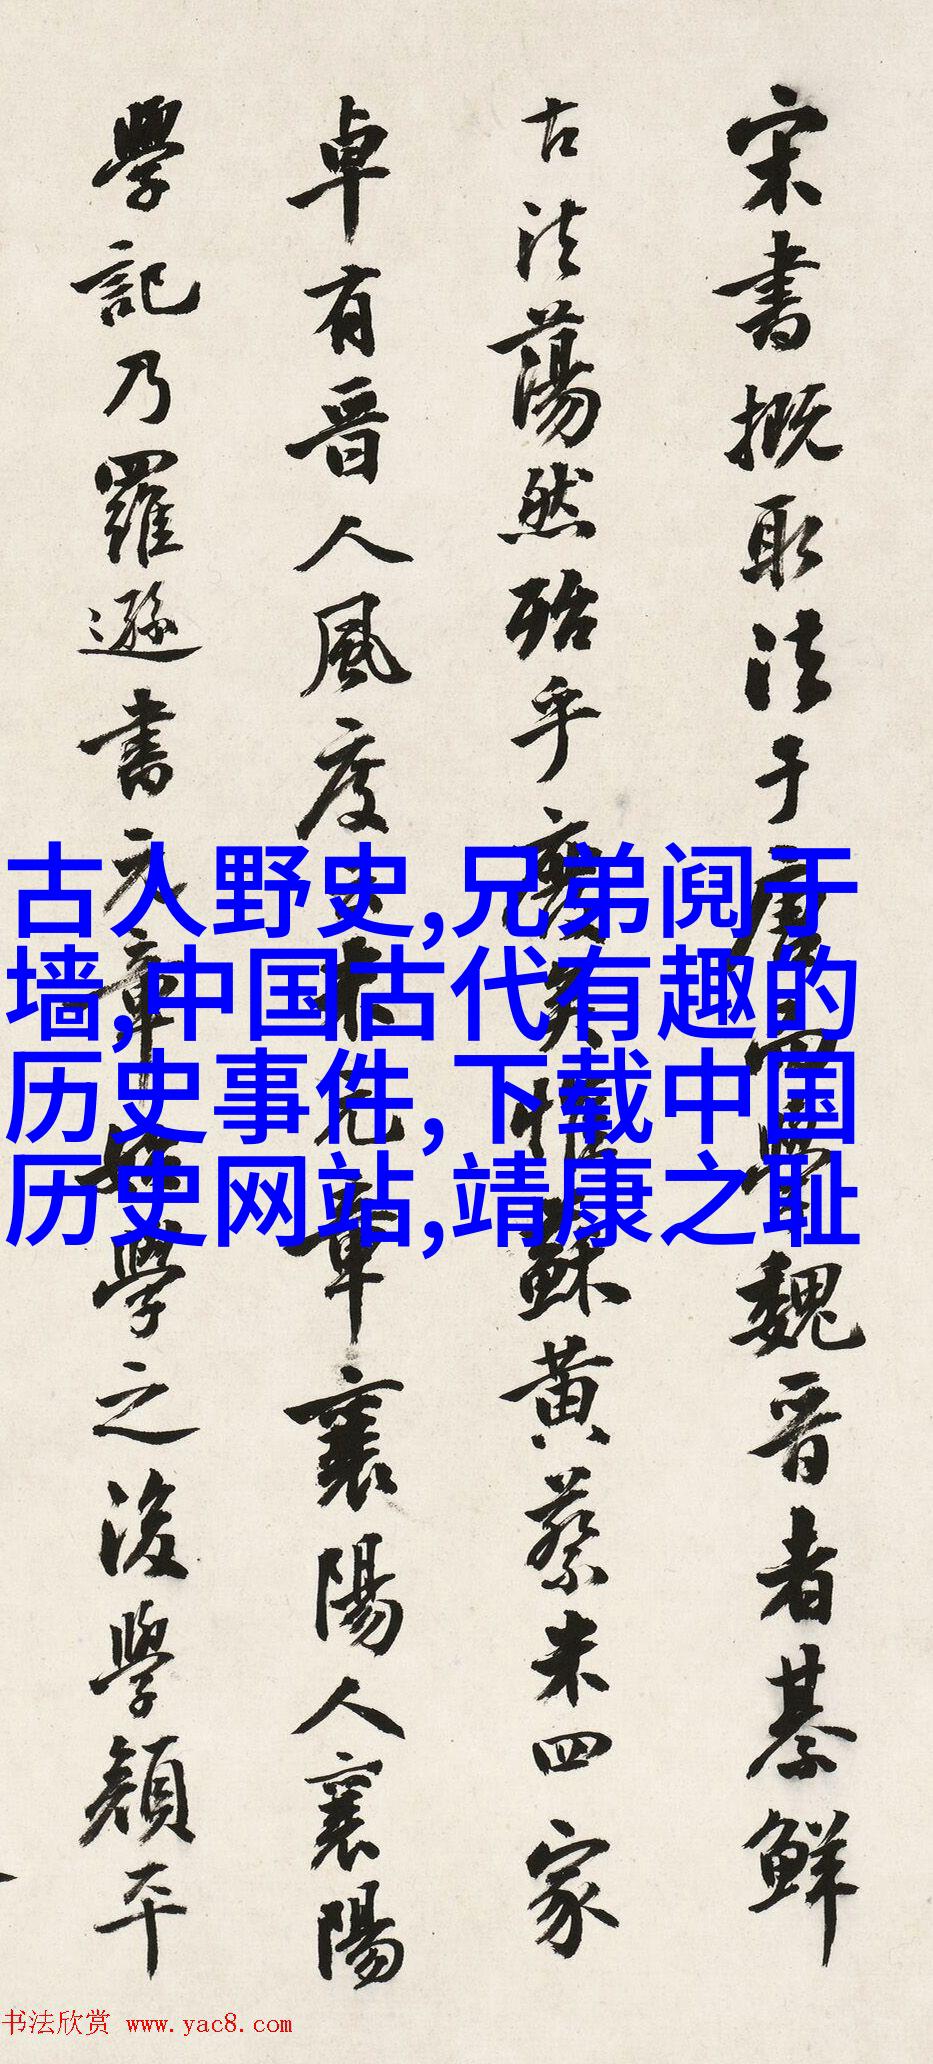 宋書概取法于唐學魏晋者綦鮮
古法蕩然殆乎廢矣惟蘇黄蔡米四家
卓有晋人風度米元章襄陽人襄陽
學記乃羅遜書元章始學之後學顔平
古人野史,兄弟阋于
墙,中国古代有趣的
历史事件,下载中国
历史网站,靖康之耻
书法欣赏 www.yac8.com